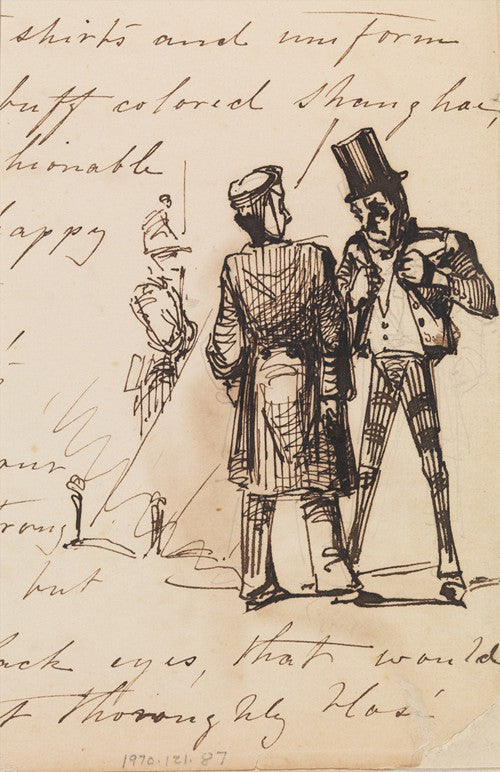 shirts and uniform
buff colored shanghae,
hionable
happy
rour
trong
but
ack eyes, that would
t thoroughly blasé
1970.121.87